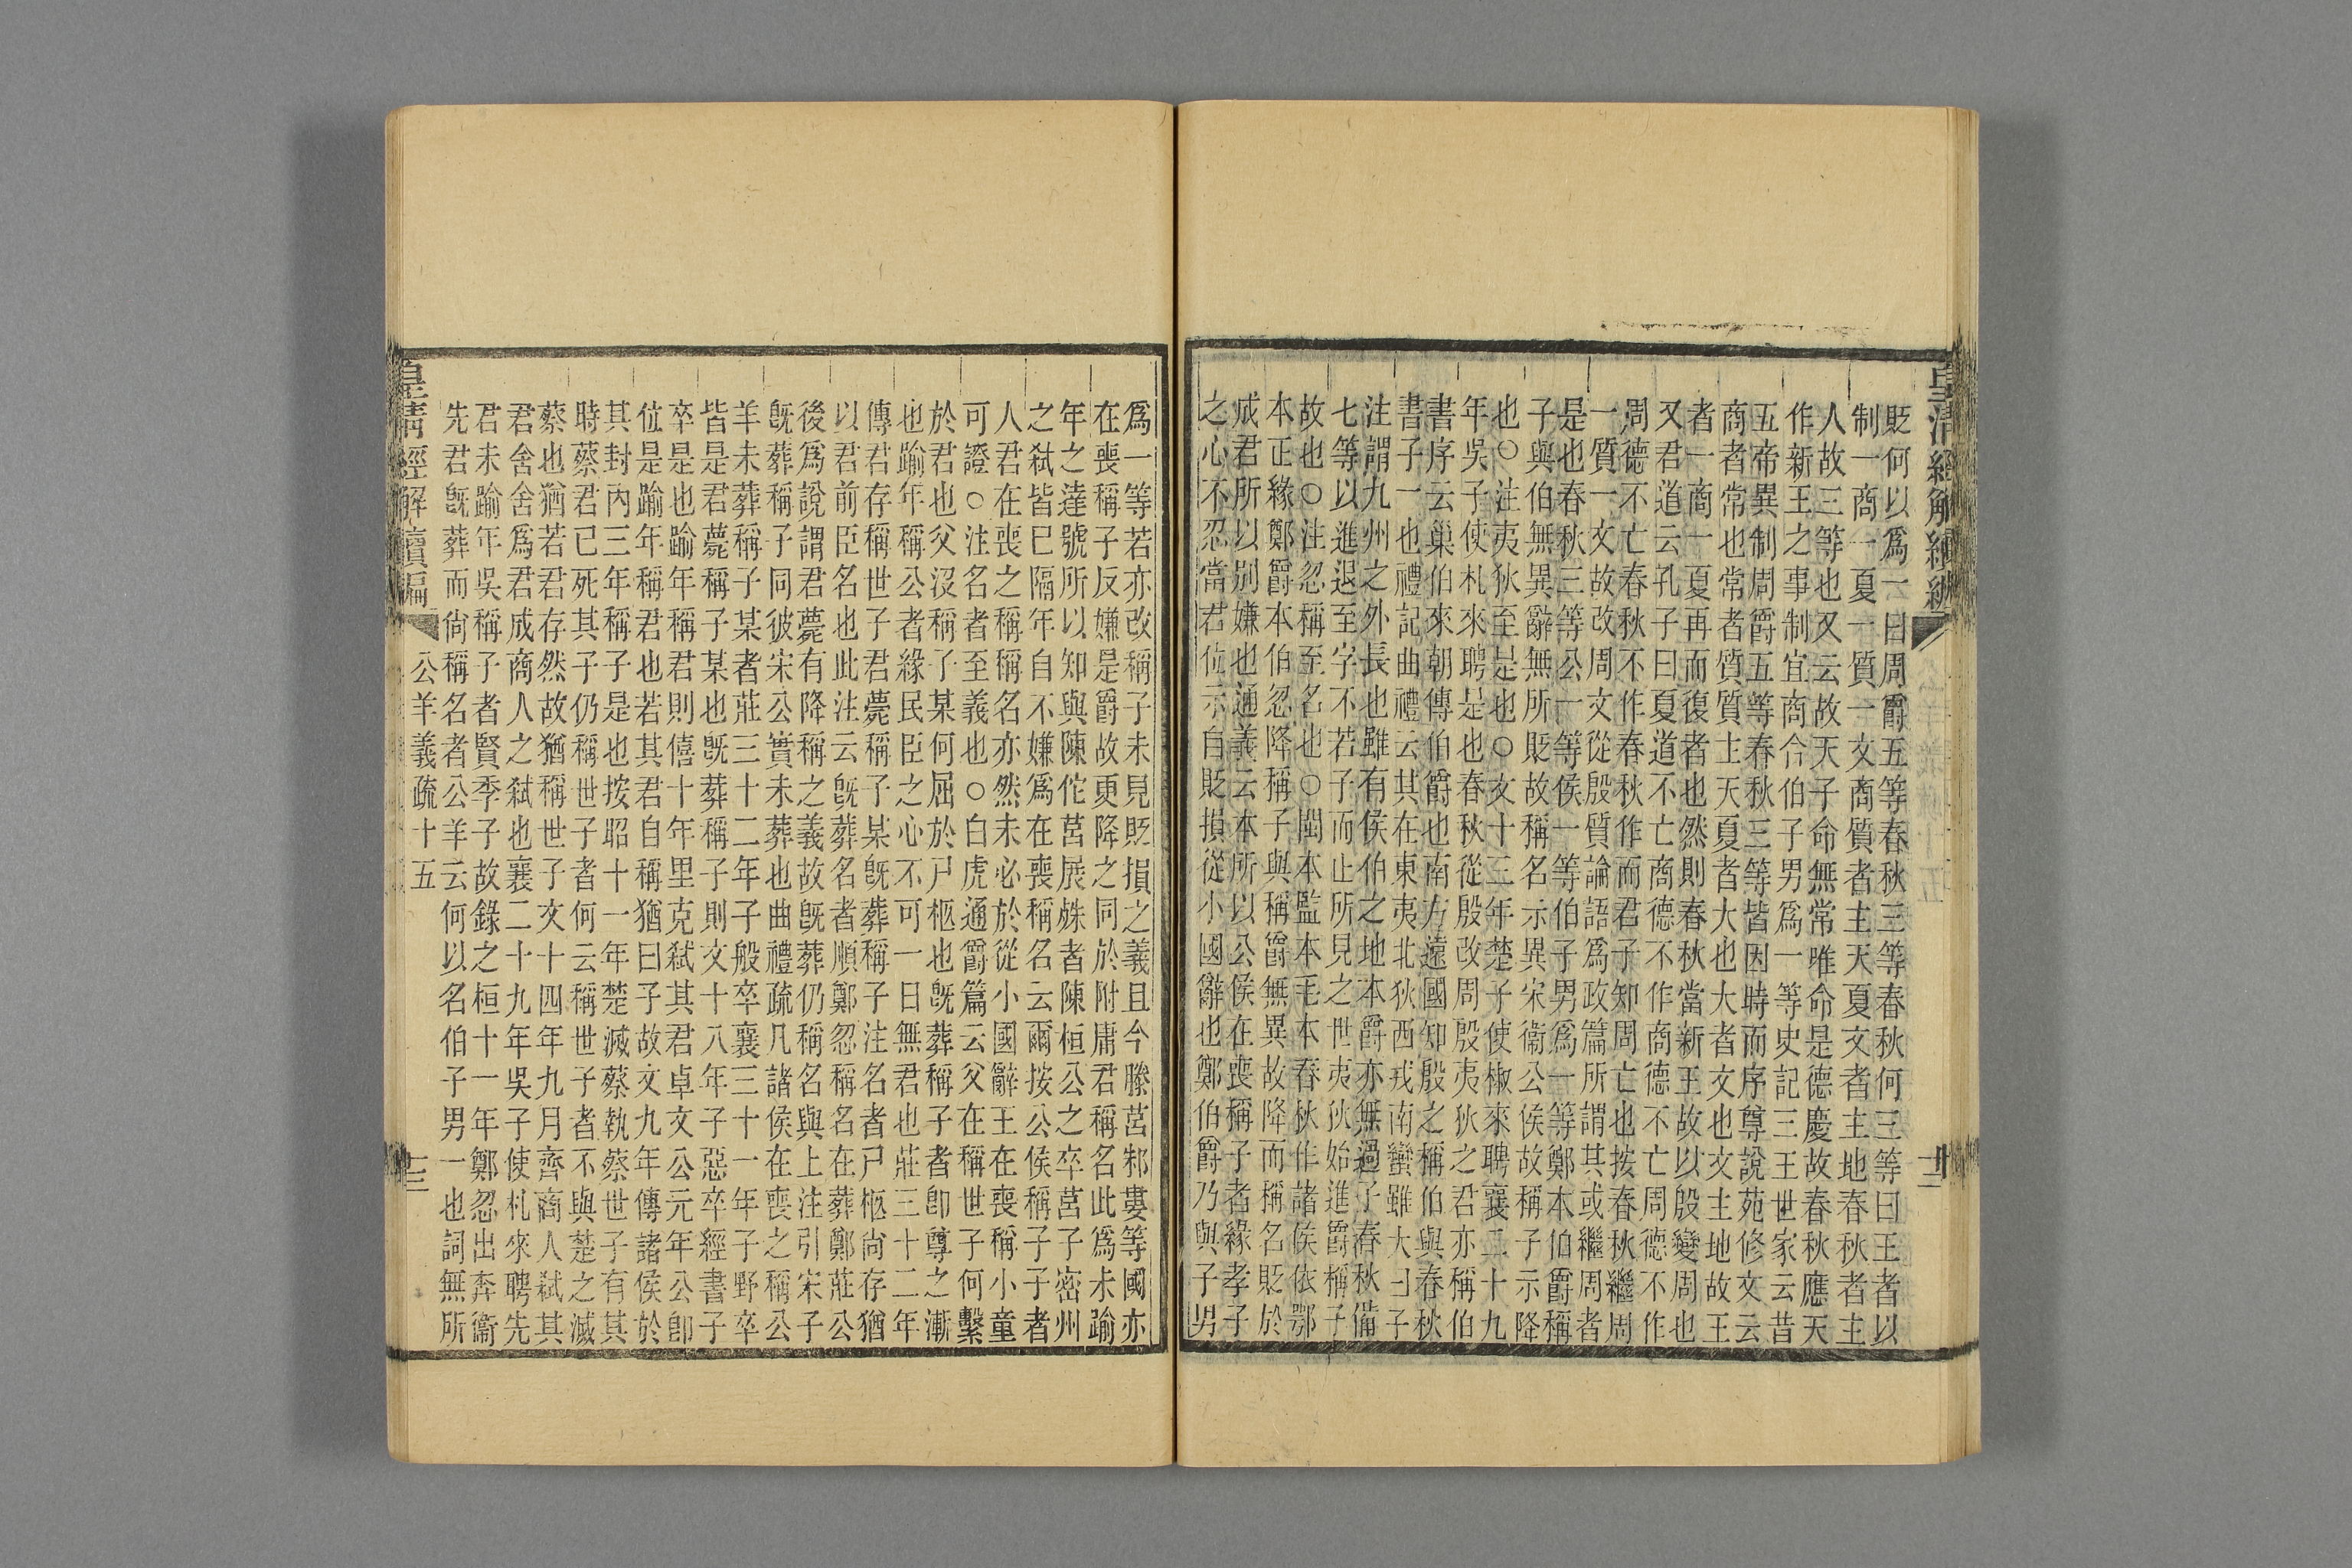 皇清經解續編
貶何以爲一曰周爵五等春秋三等春秋何三等曰王者以
制一商一夏一質一文商質者主天夏文者主地春秋者主
人故三等也又云故天子命無常唯命是德慶故春秋應天
作新王之事制宜商合伯子男爲一等史記三王世家云昔
五帝異制周爵五等春秋三等皆因時而序尊說苑修文云
商者常也常者質質主天夏者大也大者文也文主地故王
者一商一夏再而復者也然則春秋當新王故以殷變周也
又君道云孔子曰夏道不亡商德不作商德不亡周德不作
周德不亡春秋不作春秋作而君子知周亡也按春秋繼周
一質一文故改周文從殷質論語爲政篇所謂其或繼周者
是也春秋三等公一等侯一等伯子男爲一等鄭本伯爵稱
子與伯無異辭無所貶故稱名示異宋衞公侯故稱子示降
也○注夷狄至是也○文十三年楚子使椒來聘襄二十九
年吳子使札來聘是也春秋從殷改周殷夷狄之君亦稱伯
書序云巢伯來朝傳伯爵也南方遠國知殷之稱伯與春秋
書子一也禮記曲禮云其在東夷北狄西戎南蠻雖大曰子
注謂九州之外長也雖有侯伯之地本爵亦無過子春秋備
七等以進退至字不若子而止所見之世夷狄始進爵稱子
故也○注忽稱至名也○閩本監本毛本春秋作諸侯依鄂
本正緣鄭爵本伯忽降稱子與稱爵無異故降而稱名貶於
成君所以別嫌也通義云本所以公侯在喪稱子者緣孝子
之心不忍當君位示自貶損從小國辭也鄭伯爵乃與子男
爲一等若亦改稱子未見貶損之義且今滕莒邾婁等國亦
在喪稱子反嫌是爵故更降之同於附庸君稱名此爲未踰
年之達號所以知與陳佗莒展繇者陳桓公之卒莒子密州
之弑皆已隔年自不嫌爲在喪稱名云爾按公侯稱子子者
人君在喪之稱稱名亦然未必於從小國辭王在喪稱小童
可證○注名者至義也○白虎通爵篇云父在稱世子何繫
於君也父沒稱子某何屈於尸柩也旣葬稱子者卽尊之漸
也踰年稱公者緣民臣之心不可一日無君也莊三十二年
傳君存稱世子君薨稱子某旣葬稱子注名者尸柩尚存猶
以君前臣名也此注云旣葬名者順鄭忽稱名在葬鄭莊公
後爲說謂君薨有降稱之義故旣葬仍稱名與上注引宋子
旣葬稱子同彼宋公實未葬也曲禮疏凡諸侯在喪之稱公
羊未葬稱子某者莊三十二年子般卒襄三十一年子野卒
皆是君薨稱子某也旣葬稱子則文十八年子惡卒經書子
卒是也踰年稱君則僖十年里克弑其君卓文公元年公卽
位是踰年稱君也若其君自稱猶曰子故文九年傳諸侯於
其封內三年稱子是也按昭十一年楚滅蔡執蔡世子有其
時蔡君已死其子仍稱世子者何云稱世子者不與楚之滅
蔡也猶若君存然故猶稱世子文十四年九月齊商人弑其
君舍舍爲君成商人之弑也襄二十九年吳子使札來聘先
君未踰年吳稱子者賢季子故錄之桓十一年鄭忽出奔衞
先君旣葬而尚稱名者公羊云何以名伯子男一也詞無所
皇清經解續編 公羊義疏十五